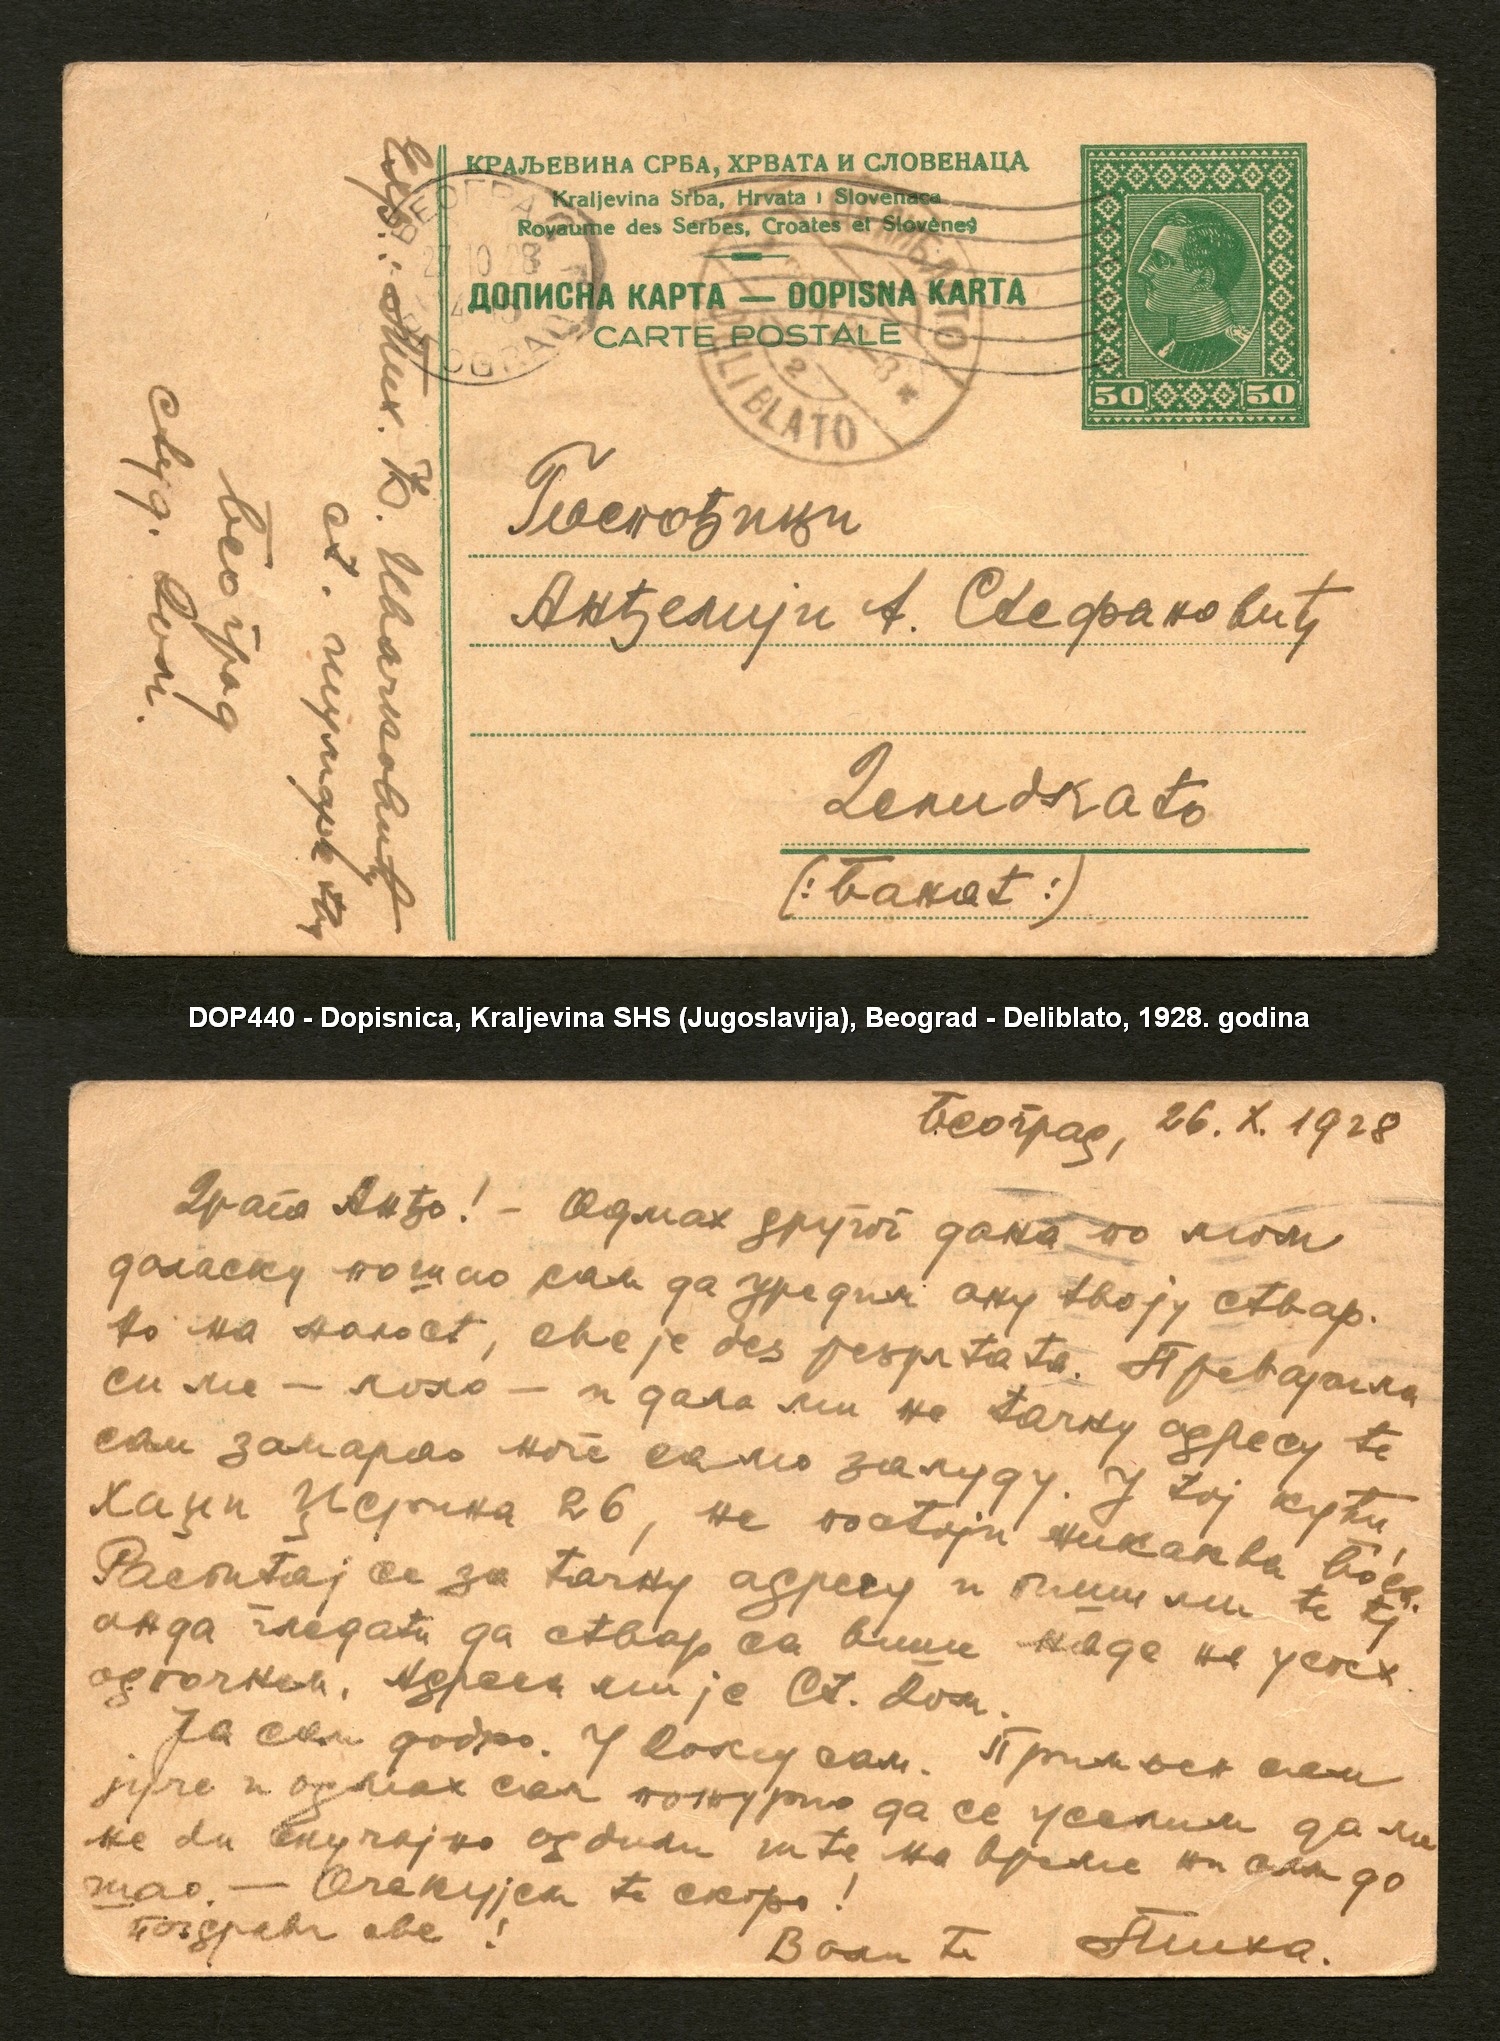 КРАЉЕВИНА СРБА, ХРВАТА И СЛОВЕНАЦА
Kraljevina Srba, Hrvata i Slovenaca
Royaume des Serbes, Croates et Slovènes
ДОПИСНА КАРТА — DOPISNA KARTA
CARTE POSTALE
БЕОГРАД
27.10.28
BEOGRAD
ДЕЛИБЛАТО
DELIBLATO
50 50
Госпођици
Анђелији А. Стефановић
Делиблато
(: Банат :)
Мих. Ђ.
Београд
Студ. Дом.
DOP440 - Dopisnica, Kraljevina SHS (Jugoslavija), Beograd - Deliblato, 1928. godina
Београд, 26. X. 1928
Драга Анђо! - Одмах другог дана по мом
доласку пошао сам да уредим ону твоју ствар.
Но на жалост, све је без резултата. Преварила
си ме - лоло - и дала ми не тачну адресу те
сам замарао ноге само залуду. У тој кући,
Хаџи Ђерина 26, не постоји никаква
Распитај се за тачну адресу и пиши ми те ћу
онда гледати да ствар са више наде на успех
одпочнем. Адреса ми је Ст. Дом.
Ја сам добро. У Дому сам. Примљен сам
јуче и одмах сам пожурио да се уселим да ме
не би случајно одбили што на време нисам до
шао. — Очекујем те скоро!
Поздрави све!
Воли те Миха.